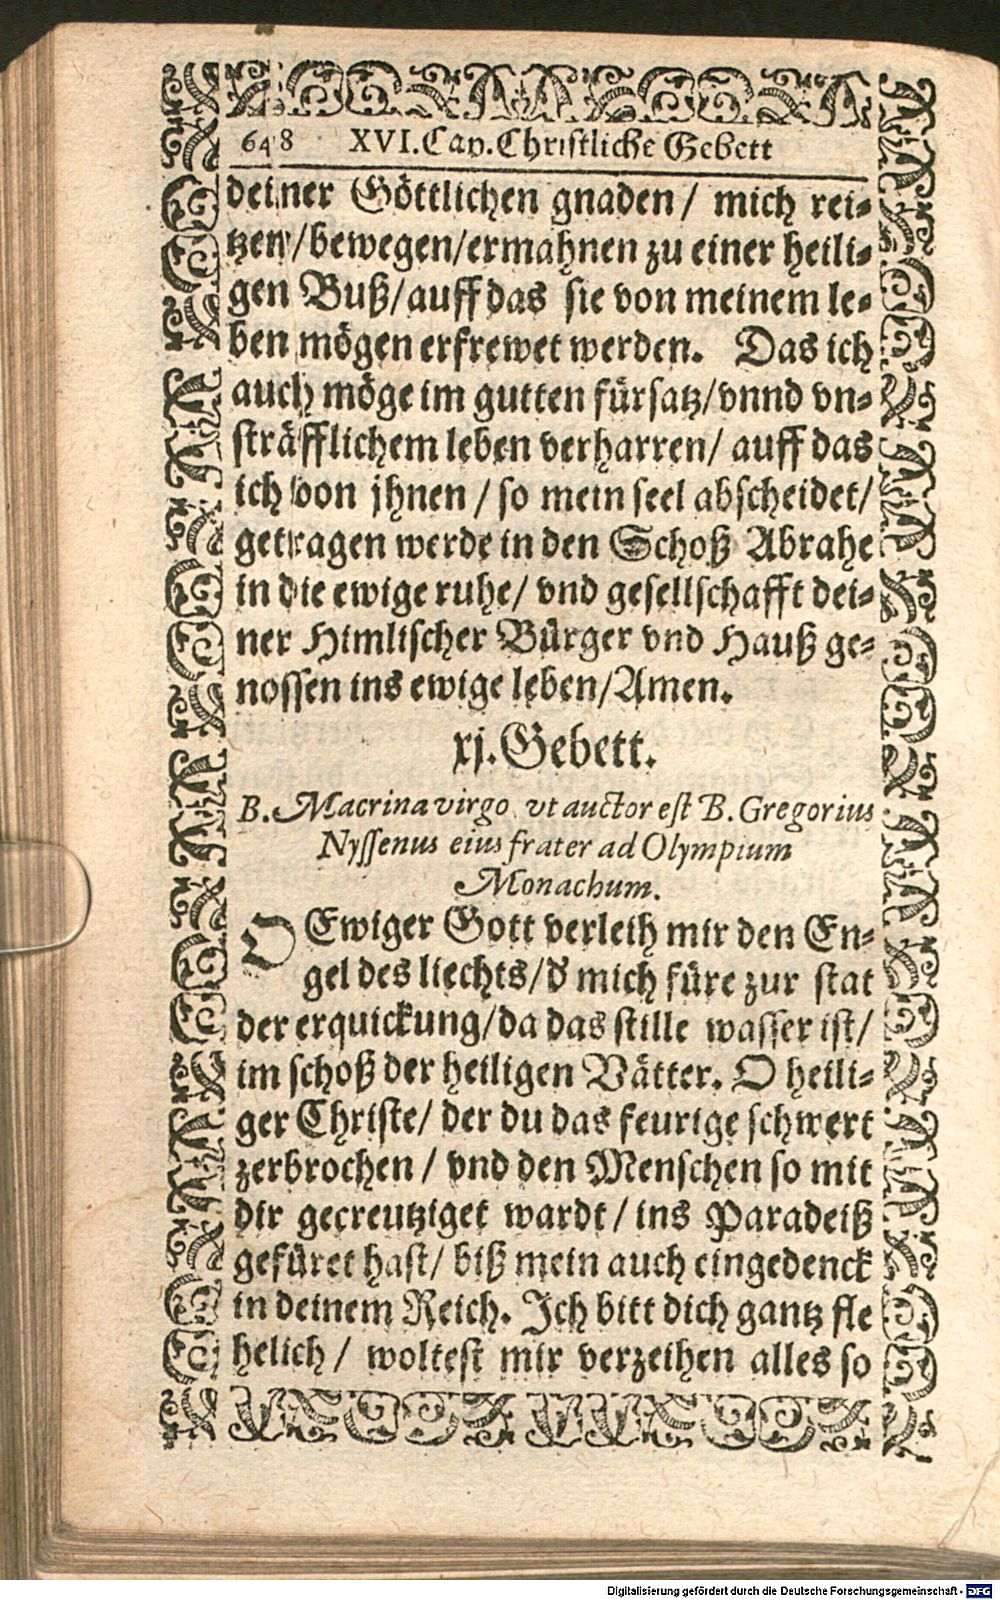 648 XVI. Cap. Christliche Gebett
deiner Göttlichen gnaden / mich rei⸗
tzen / bewegen / ermahnen zu einer heili⸗
gen Buß / auff das sie von meinem le⸗
ben mögen erfrewet werden. Das ich
auch möge im gutten fürsatz / vnnd vn⸗
sträfflichem leben verharren / auff das
ich von jhnen / so mein seel abscheidet /
getragen werde in den Schoß Abrahe
in die ewige ruhe / vnd gesellschafft dei⸗
ner Himlischer Bürger vnd Hauß ge⸗
nossen ins ewige leben / Amen.
xj. Gebett.
B. Macrina virgo, vt auctor est B. Gregorius
Nyssenus eius frater ad Olympium
Monachum.
O Ewiger Gott verleih mir den En⸗
gel des liechts / d' mich füre zur stat
der erquickung / da das stille wasser ist /
im schoß der heiligen Vätter. O heili⸗
ger Christe / der du das feurige schwert
zerbrochen / vnd den Menschen so mit
dir gecreutziget wardt / ins Paradeiß
gefüret hast / biß mein auch eingedenck
in deinem Reich. Ich bitt dich gantz fle
helich / woltest mir verzeihen alles so
Digitalisierung gefördert durch die Deutsche Forschungsgemeinschaft - DFG